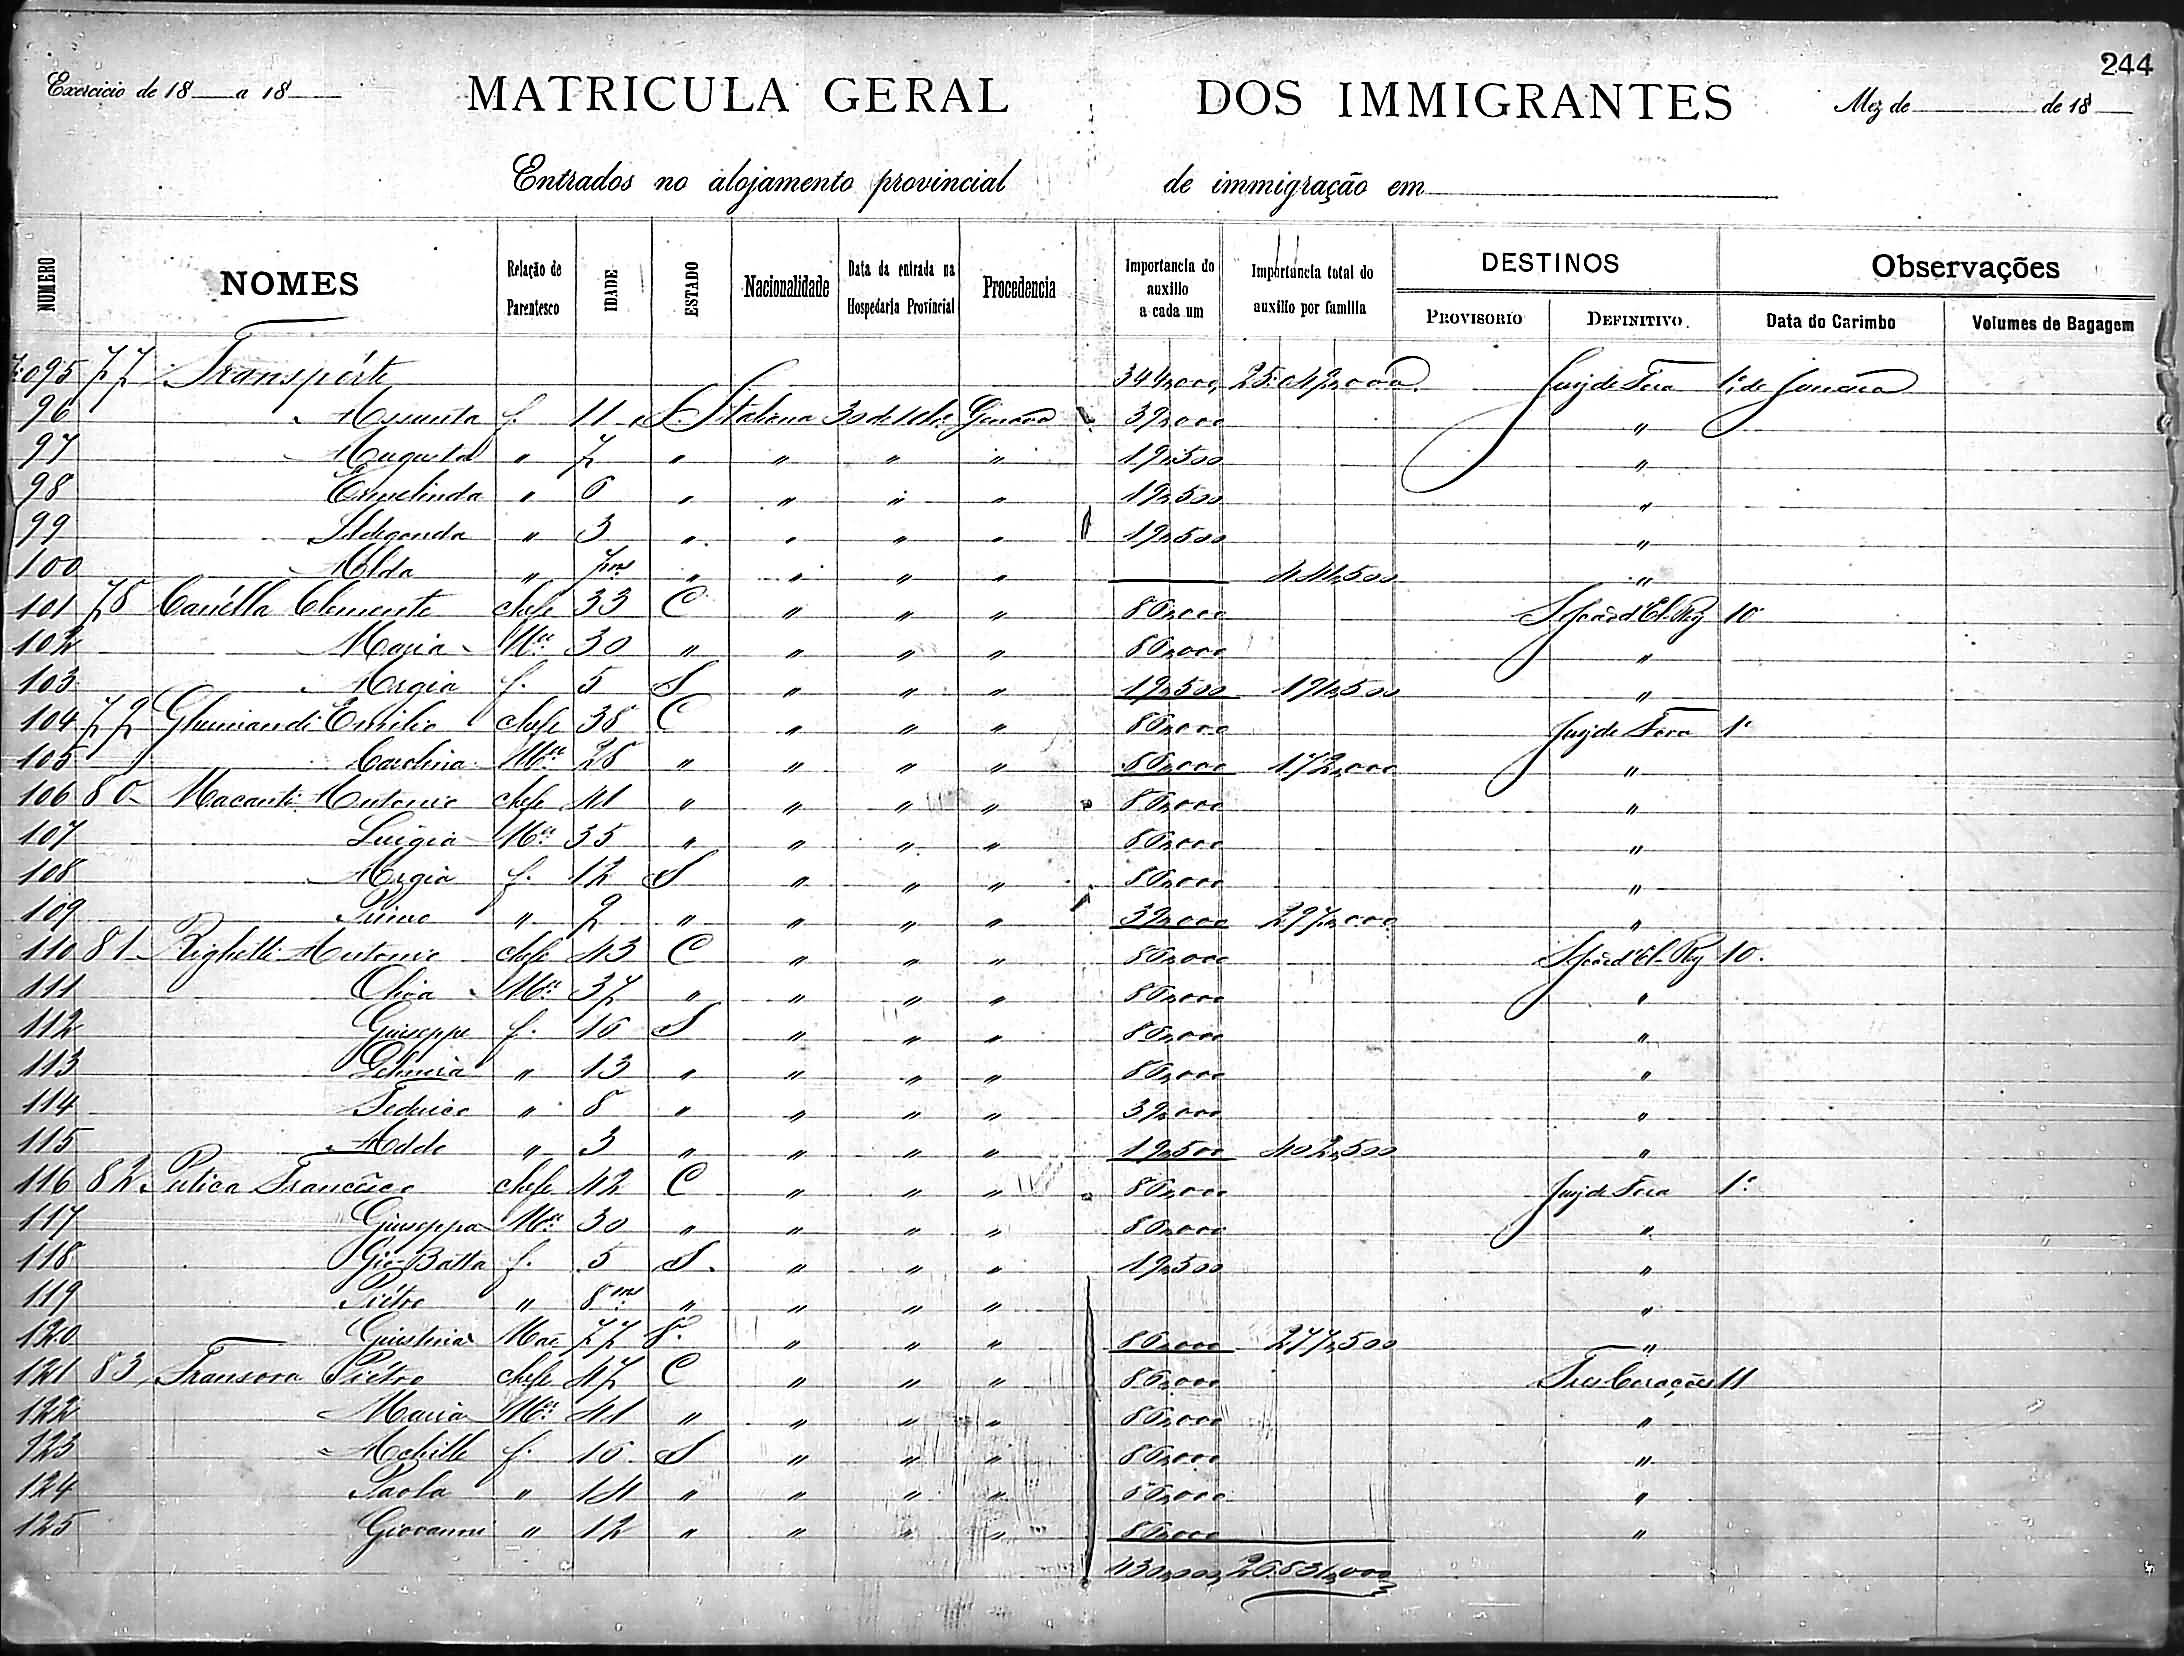 244
Exercicio de 18 a 18 MATRICULA GERAL DOS IMMIGRANTES Mez de de 18
Entrados no alojamento provincial de immigração em
NUMERO NOMES Relação de Parentesco IDADE ESTADO Nacionalidade Data da entrada na Hospedaria Provincial Procedencia Importancia do auxilio a cada um Importancia total do auxilio por familia DESTINOS PROVISORIO DEFINITIVO. Observações Data do Carimbo Volumes de Bagagem
095 77 Transporte 344,000 Juiz de Fora 1º de Janeiro
96 Assunta f. 11 S. Italiana 30 Genova 39,000 "
97 Augusta " 7 " " " " 19,500 "
98 Ermelinda " 6 " " " " 19,500 "
99 Ildegonda " 3 " " " " 19,500 "
100 Alda " 7ms " " " " 441,500 "
101 78 Clemente chefe 33 C " " " 86,000 S. João d'El-Rey 10
102 Maria Mer 30 " " " " 86,000 "
103 Argia f. 5 S " " " 19,500 191,500 "
104 79 Emilio chefe 38 C " " " 86,000 Juiz de Fora 1º
105 Carolina Mer 28 " " " " 86,000 172,000 "
106 80 Macanti Antonio chefe 41 " " " " 86,000 "
107 Luigia Mer 35 " " " " 86,000 "
108 Argia f. 12 S " " " 86,000 "
109 Primo " 9 " " " " 39,000 297,000 "
110 81 Righetti Antonio chefe 43 C " " " 86,000 S. João d'El-Rey 10.
111 Mer 37 " " " " 86,000 "
112 Giuseppe f. 16 S " " " 86,000 "
113 " 13 " " " " 86,000 "
114 Federico " 8 " " " " 39,000 "
115 Adele " 3 " " " " 19,500 402,500 "
116 82 Putica Francesco chefe 42 C " " " 86,000 Juiz de Fora 1º
117 Giuseppa Mer 30 " " " " 86,000 "
118 Gio-Batta f. 5 S. " " " 19,500 "
119 Pietro " 8ms " " " " "
120 Giustina Mãe 77 " " " 86,000 277,500 "
121 83 Transora Pietro chefe 47 C " " " 86,000 Tres Corações 11
122 Maria Mer 41 " " " " 86,000 "
123 Achille f. 16 S " " " 86,000 "
124 Paola " 14 " " " " 86,000 "
125 Giovanni " 12 " " " " 86,000 "
430,000, 26.831,000